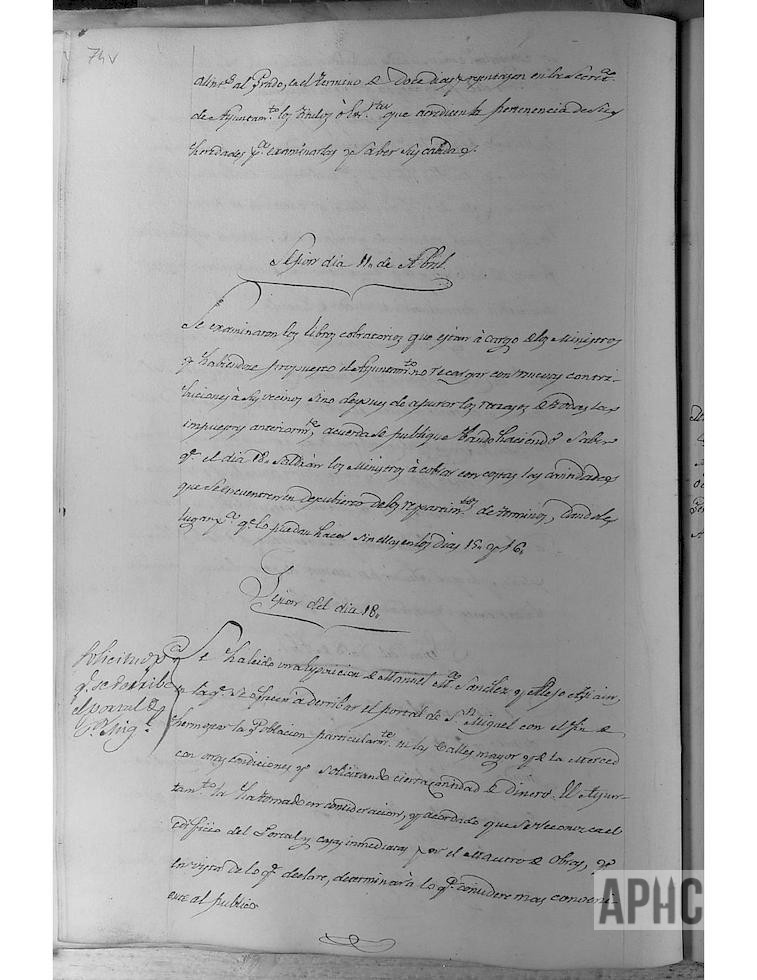 74v
al Prado, en el termino de doce dias presentasen en la Secret.ª
de Ayuntam.to los titulos que acrediten la pertenencia de sus
heredades p.ª examinarlos y saber su cabida.
Sesion dia 11. de Abril.
Se examinaron los libros cobratorios que estan à cargo de los Ministros
y habiendose propuesto el Ayuntam.to no recargar con nuevas contri-
buciones à sus vecinos sino despues de apurar los retazos de todas las
impuestas anteriorm.te, acuerda se publique Bando haciendo saber
q.e el dia 18. saldràn los Ministros à cobrar con costas las cantidades
que se encuentren en descubierto de los repartim.tos de terminos, dandoles
lugar p.ª q.e lo puedan hacer sin ellas en los dias 15. y 16.
Sesion del dia 18.
Solicitud p.ª
q.e se derribe
el portal de
S.n Mig.l
Se ha leido una esposicion de Manuel M.ª Sanchez y Alejo
en la q.e se ofrecen à derribar el portal de S.n Miguel con el fin de
hermosear la Poblacion particularm.te en las Calles mayor y de la Merced
con otras condiciones y solicitando cierta cantidad de dinero. El Ayun-
tam.to la ha tomado en consideracion, y acordado que se reconozca el
edificio del Portal y casas inmediatas por el Maestro de Obras, y
en vista de lo q.e declare, determinarà lo q.e considere mas conveni-
ente al publico.
APHC